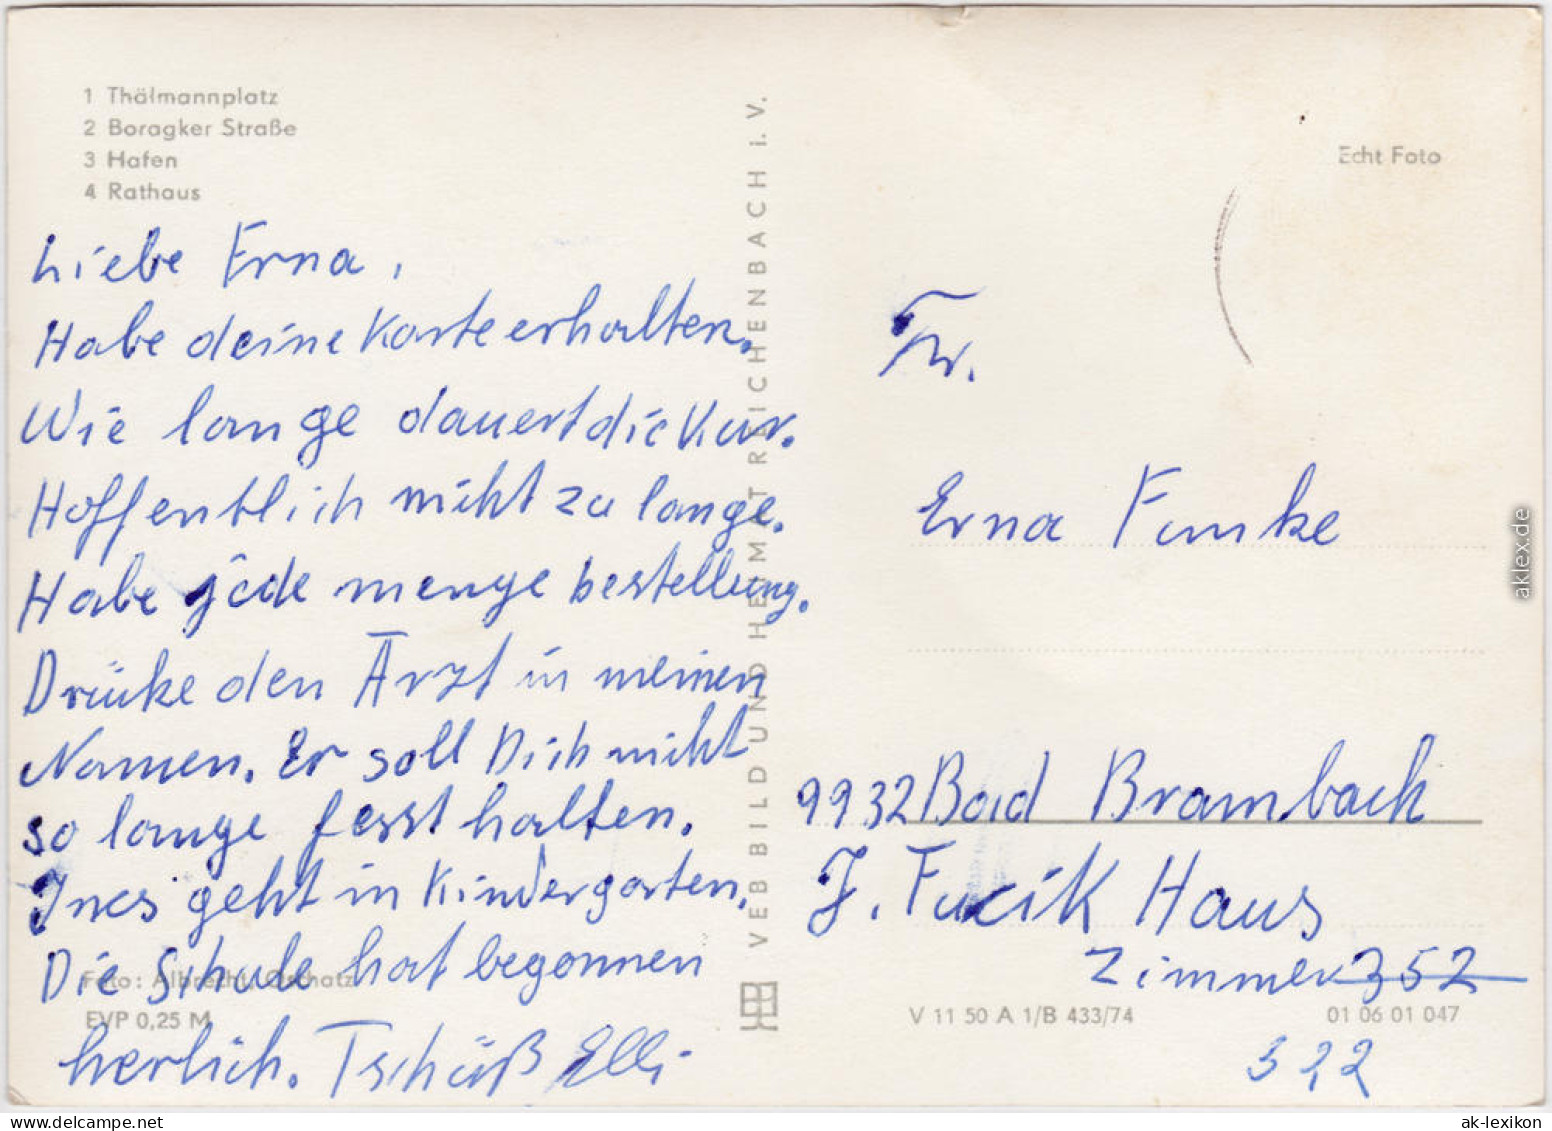 1 Thälmannplatz
2 Boragker Straße
3 Hafen
4 Rathaus
Liebe Erna,
Habe deine Karte erhalten.
Wie lange dauert die Kur.
Hoffentlich nicht zu lange.
Habe jede menge bestellung.
Drücke den Arzt in meinen
Namen. Er soll Dich nicht
so lange fesst halten.
Ines geht in Kindergarten.
Die Schule hat begonnen
herlich. Tschüß Elli
Foto: Albrecht, Oschatz
EVP 0,25 M
VEB BILD UND HEIMAT REICHENBACH i. V.
Echt Foto
Fr.
Erna Funke
9932 Bad Brambach
J. Fucik Haus
Zimmer 352
322
V 11 50 A 1/B 433/74
01 06 01 047
aklex.de
www.delcampe.net
ak-lexikon